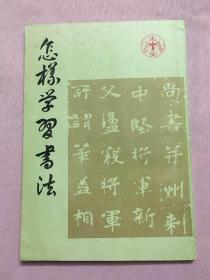 怎樣学習書法
尚書并州刺
中堅將軍新
父盪寇將軍
所謂華益相